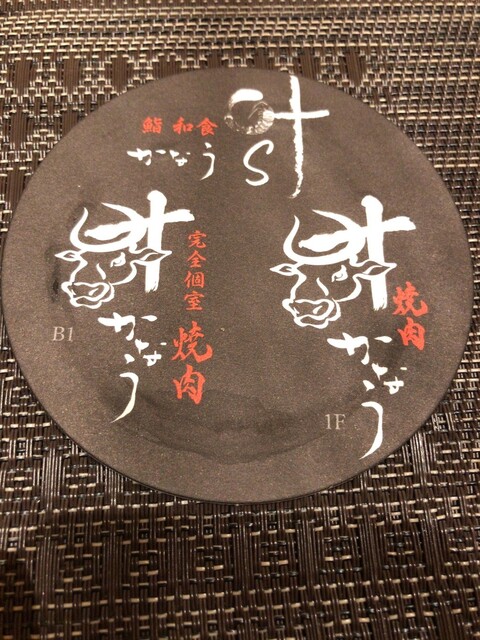 鮨 和食
かなう
叶
S
叶
かなう
完全個室
焼肉
B1
叶
かなう
焼肉
1F